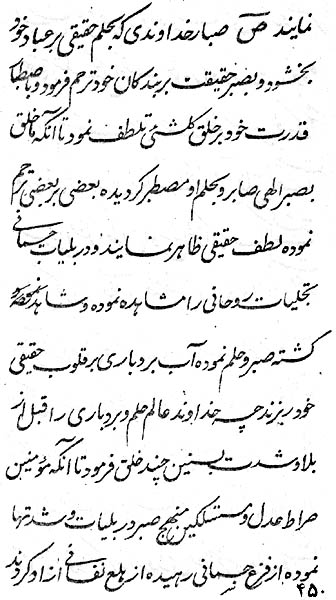 نمایند ص صبار خداوندی که بحلم حقیقی بر عباد خود
بخشود و بصبر حقیقت بر بندکان خود ترحم فرمود و باصطبار
قدرت خود بر خلق کلشئ تلطف نمود تا آنکه خلق
بصبر الهی صابر و بحلم او مصطبر کردیده بعضی بر بعضی ترحم
نموده لطف حقیقی ظاهر نمایند و در بلیات جسمانی
تجلیات روحانی را مشاهده نموده و شاهد
کشته صبر و حلم نموده آب بردباری بر قلوب حقیقی
خود ریزند چه خداوند عالم حلم و بردباری را قبل از
بلا و شدت بسنین چند خلق فرمود تا آنکه مؤمنین
صراط عدل و مستسلکین منهج صبر در بلیات و شدتها
نموده از فزع جسمانی رهیده از هلع نفسانی آزاد کردند
۴۵۰